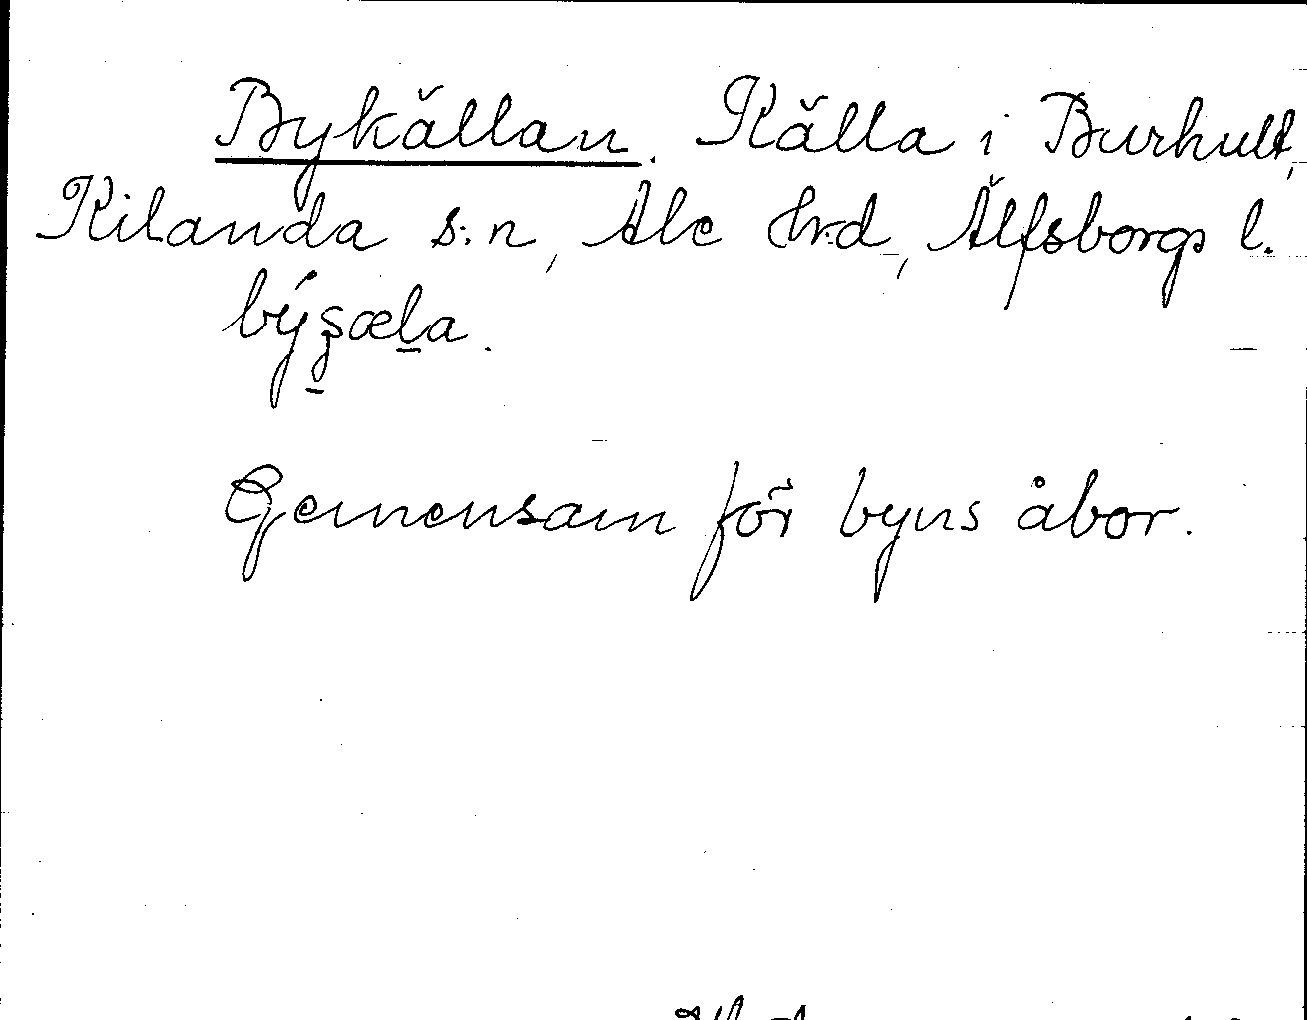 Bykällan. Källa i Burhult,
Kilanda s:n, Ale hrd, Älfsborgs l.
Gemensam för byns åbor.